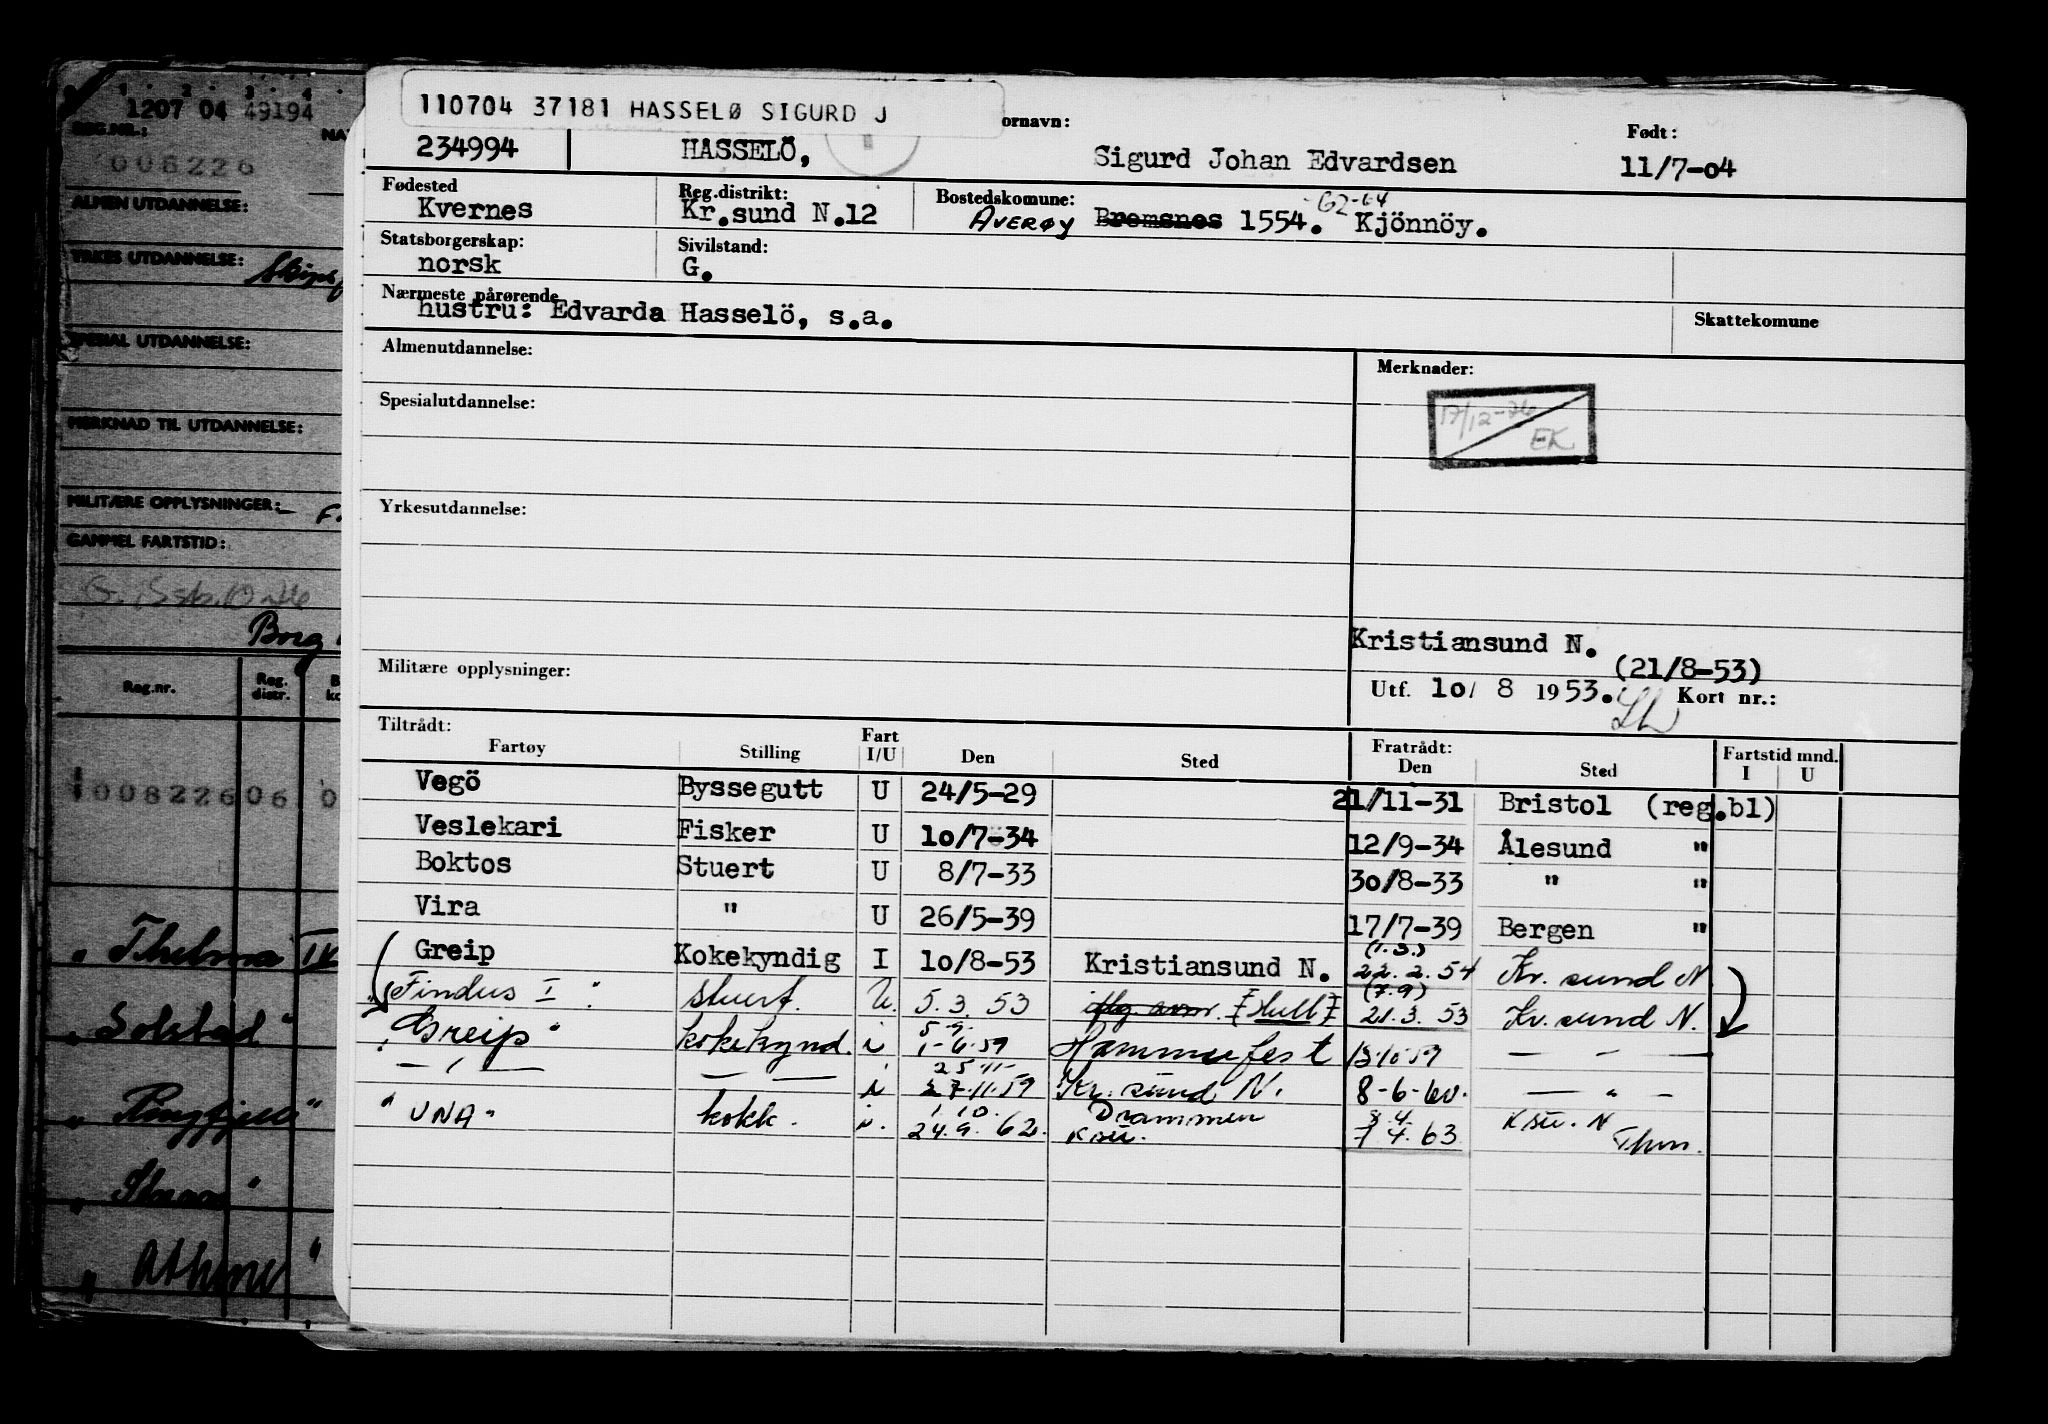 1207 04 49194
REG.NR.:
008226
ALMEN UTDANNELSE:
YRKES UTDANNELSE:
SPESIAL UTDANNELSE:
MERKNAD TIL UTDANNELSE:
MILITÆRE OPPLYSNINGER:
GAMMEL FARTSTID:
Borg
Reg.nr. Reg. distr.
10082260 6 0
" Thelma IV
" Solstad "
" Kongsfjell "
" Athene "
110704 37181 HASSELØ SIGURD J
ornavn: Født:
234994 HASSELÖ, Sigurd Johan Edvardsen 11/7-04
Fødested Reg.distrikt: Bostedskomune: -62-64
Kvernes Kr.sund N.12 AVERØY Bremsnes 1554. Kjönnöy.
Statsborgerskap: Sivilstand:
norsk G.
Nærmeste pårørende
hustru: Edvarda Hasselö, s.a. Skattekomune
Almenutdannelse: Merknader:
17/12-76
EK
Spesialutdannelse:
Yrkesutdannelse:
Kristiansund N.
(21/8-53)
Militære opplysninger: Utf. 10/ 8 1953. Kort nr.:
Tiltrådt: Fart Fratrådt: Fartstid mnd.
Fartøy Stilling I/U Den Sted Den Sted I U
Vegö Byssegutt U 24/5-29 21/11-31 Bristol (reg.bl)
Veslekari Fisker U 10/7-34 12/9-34 Ålesund "
Boktos Stuert U 8/7-33 30/8-33 " "
Vira " U 26/5-39 17/7-39 Bergen "
(1.3.)
Greip Kokekyndig I 10/8-53 Kristiansund N. 22.2.54 Kr.sund N
(7.9)
"Findus I". stuert. U. 5.3.53 [Hull] 21.3.53 Kr.sund N.
5-9.
"Greip" kokekynd. i 1-6.59 Hammerfest 13.10.59 — - —
25.11-
— / — — — i 27.11.59 Kr.sund N. 8-6-60. — " —
1.10. Drammen 8.4. Ksu. N
"UNA" kokk. i. 24.9.62. Ksu. 7 4.63 Thm.